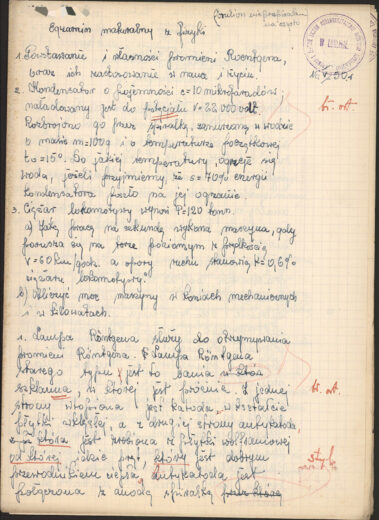 Egzamin maturalny z fizyki
1. Powstawanie i własności promieni Roentgena,
oraz ich zastosowanie w nauce i życiu.
2. Kondensator o pojemności c=10 mikrofaradów
naładowany jest do potencjału V=22000 volt.
Rozbrojono go przez spiralkę, zanurzoną w wodzie
o masie m=100g i o temperaturze początkowej
t₀=15°. Do jakiej temperatury ogrzeje się
woda, jeżeli przyjmiemy, że s=70% energii
kondensatora poszło na jej ogrzanie.
3. Ciężar lokomotywy wynosi P=120 tonn.
a) Jaką pracę na sekundę wykona maszyna, gdy
porusza się na torze poziomym z prędkością
V=60 km/godz. a opory ruchu stanowią K=0,6%
ciężaru lokomotywy.
b) Obliczyć moc maszyny w koniach mechanicznych
i w kilowatach.
1. Lampa Röntgena służy do otrzymywania
promieni Röntgena. Lampa Röntgena
starego typu, jest to bania
szklana, w której jest próżnia. Z jednej
strony wtopiona jest katoda, w kształcie
płytki wklęsłej, a z drugiej strony antykatoda,
która jest zrobiona z płytki wolframowej
od której jest dobrym
przewodnikiem ciepła, antykatoda jest
połączona z anodą spiralką